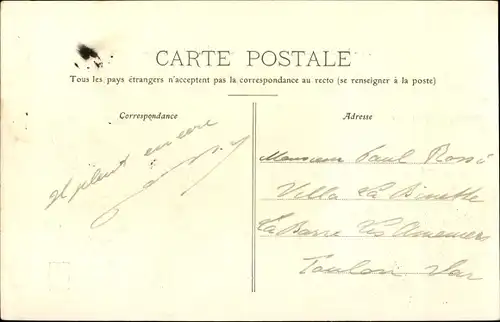 CARTE POSTALE
Tous les pays étrangers n'acceptent pas la correspondance au recto (se renseigner à la poste)
Correspondance
Adresse
Il pleut encore
Monsieur Paul Rossi
Villa La Binette
La Barre Les Ameniers
Toulon Var